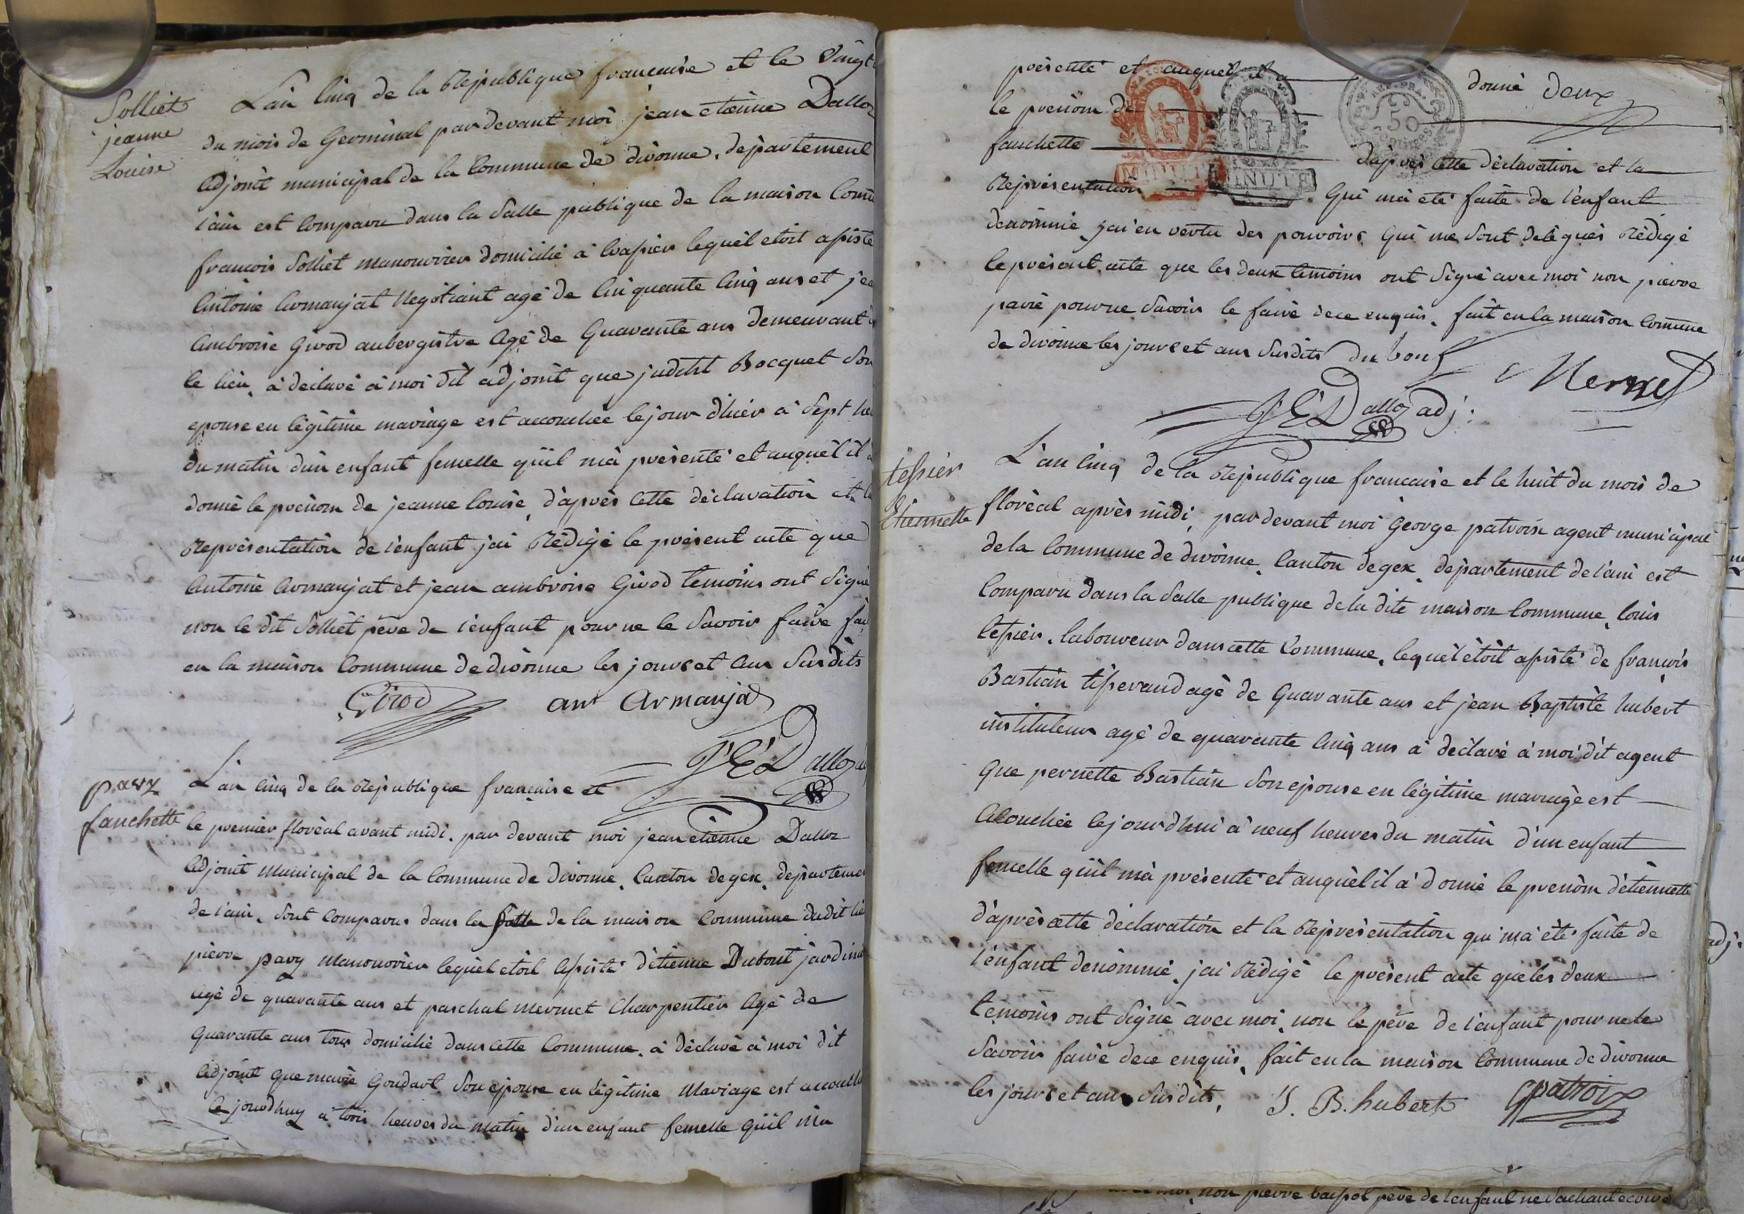 Solliet
jeanne
Louise
L'an cinq de la République française et le vingt
du mois de Germinal par devant moi jean etienne Dalloz
adjoint municipal de la Commune de divonne, département
l'ain est comparu dans la Salle publique de la maison Comm
françois Solliet manouvrier domicilié à lequel etoit assisté
Antoine Armanjat Négotiant agé de Cinquante Cinq ans et jea
Ambroise Girod aubergistre Agé de Quarante ans demeurant
le lieu, à déclaré à moi dit adjoint que judith Bocquet Son
epouse en légitime mariage est accouchée le jour d'hier à Sept he
du matin d'un enfant femelle qu'il m'a présenté et auquel il a
donné le prénom de jeanne louise, d'après cette déclaration et la
Représentation de l'enfant j'ai Rédigé le présent acte que
Antoine Armanjat et jean ambroise Girod temoins ont Signé
non le dit Solliet père de l'enfant pour ne le Savoir faire fai
en la maison Commune de divonne les jours et ans Susdits
Girod ant Armanjat
J E Dalloz ad
pary
fanchette
L'an cinq de la République française et
le premier floréal avant midi, par devant moi jean etienne Dalloz
adjoint Municipal de la Commune de Divonne, Canton de gex, départemen
de l'ain, sont comparus dans la Salle de la maison Commune dudit lie
pierre pary Manouvrier lequel etoit assisté d'étienne Dubout jardinie
agé de quarante ans et paschal mermet Charpentier Agé de
quarante ans tous domicilié dans cette Commune, à déclaré à moi dit
adjoint que marie Goudart Son epouse en Légitime Mariage est accouch
le jourdhuy a trois heures du matin d'un enfant femelle qu'il m'a
présenté et auquel il a donné deux
le prénom de
fanchette d'après cette déclaration et la
Représentation Qui m'a été faite de l'enfant
dénommé, j'ai en vertu des pouvoirs Qui me Sont délégués Rédigé
le présent acte que les deux temoins ont Signé avec moi non pierre
parié pour ne Savoir le faire de ce enquis, fait en la maison Commune
de divonne les jours et ans Susdits du bout Mermet
J E Dalloz adj:
tessier
Etiennette
L'an cinq de la République francaise et le huit du mois de
floréal après midi, par devant moi george patroix agent municipal
de la Commune de divonne, Canton de gex, département de l'ain est
Comparu dans la Salle publique de la dite maison Commune, louis
tessier, laboureur dans cette Commune, lequel étoit assisté de françois
Bastian tisserand agé de Quarante ans et jean Baptiste hubert
instituteur agé de quarante cinq ans à déclaré à moi dit agent
Que pernette Bastian Son epouse en légitime mariage est
Acouchée lejourdhui à neuf heures du matin d'un enfant
femelle qu'il m'a présenté et auquel il à donné le prénom d'étiennette
d'après cette déclaration et la Représentation qui m'a été faite de
l'enfant denommé, j'ai Rédigé le présent acte que les deux
temoins ont Signé avec moi, non le père de l'enfant pour ne le
Savoir faire de ce enquis, fait en la maison Commune de divonne
les jours et ans Susdits. J. B. hubert G patroix
adj:
non pierre père de l'enfant ne Sachant ecrire